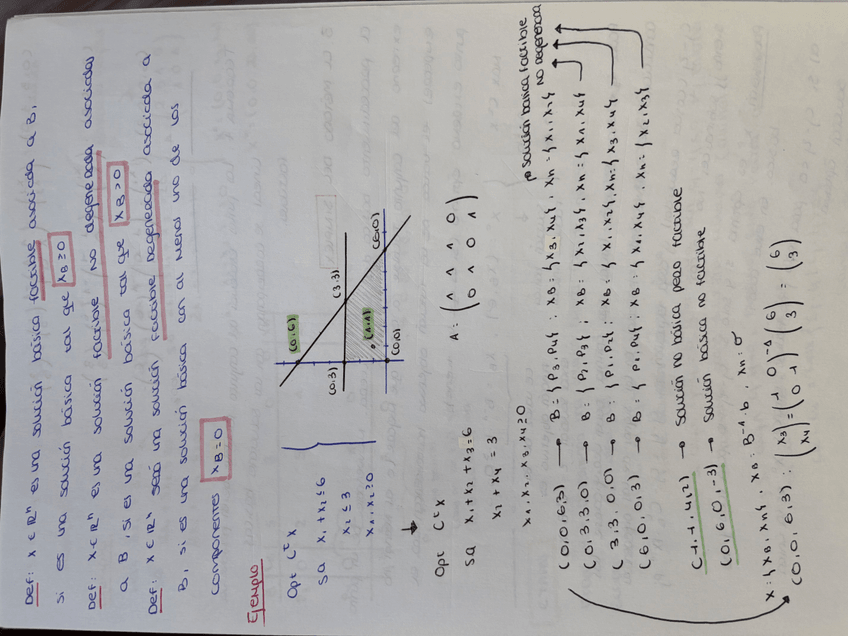 Def: x ∈ ℝⁿ es una solución básica factible asociada a B,
si es una solución básica tal que x_B ≥ 0
Def: x ∈ ℝⁿ es una solución factible no degenerada asociada
a B, si es una solución básica tal que x_B > 0
Def: x ∈ ℝⁿ será una solución factible degenerada asociada a
B, si es una solución básica con al menos uno de los
componentes x_B = 0
Ejemplo
Opt Cᵗx
sa x₁+x₂ ≤ 6
x₂ ≤ 3
x₁,x₂ ≥ 0
(0,6)
(0,3)
(3,3)
(1,1)
(6,0)
(0,0)
Opt Cᵗx
sa x₁+x₂+x₃=6
x₂+x₄=3
x₁,x₂,x₃,x₄ ≥ 0
A = ( 1 1 1 0
0 1 0 1 )
solución básica factible
no degenerada
(0,0,6,3) → B={P₃,P₄} ; x_B={x₃,x₄}, x_n={x₁,x₂}
(0,3,3,0) → B={P₂,P₃} ; x_B={x₂,x₃}, x_n={x₁,x₄}
(3,3,0,0) → B={P₁,P₂} ; x_B={x₁,x₂}, x_n={x₃,x₄}
(6,0,0,3) → B={P₁,P₄} ; x_B={x₁,x₄}, x_n={x₂,x₃}
(1,1,4,2) → solución no básica pero factible
(0,6,0,-3) → solución básica no factible
x={x_B,x_n}, x_B=B⁻¹·b, x_n=0
(0,0,6,3) : (x₃ x₄) = (1 0 0 1)⁻¹ (6 3) = (6 3)